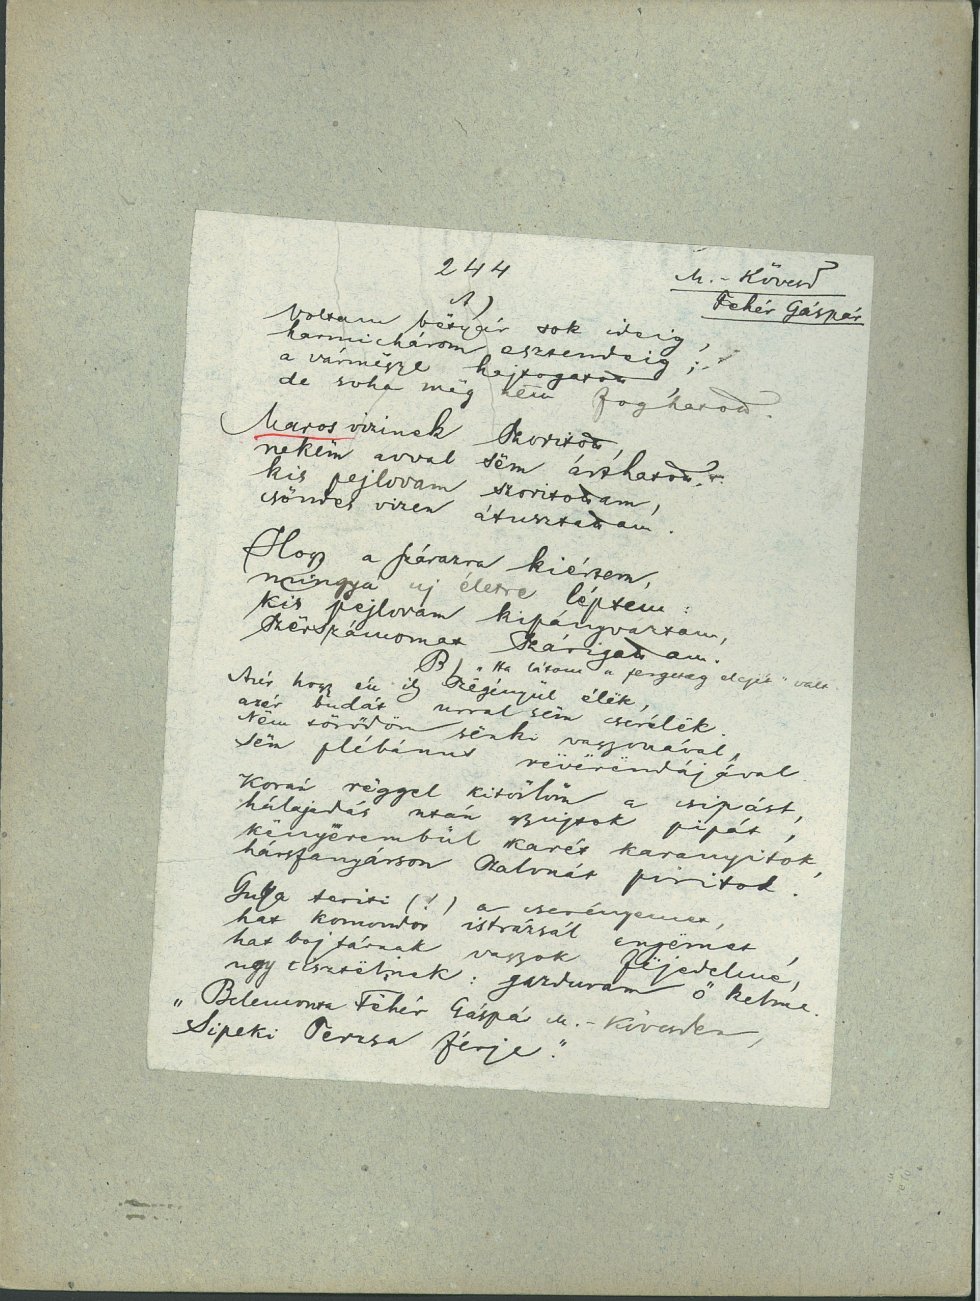 244
M. - Kövesd
Fehér Gáspár
A)
Voltam bëtyár sok ideig,
harmichárom esztendeig;
a vármëgye hajtogatott,
de soha mëg nem foghatott.
Maros vizinek szoritott,
nekëm avval sëm árthatott.
kis pejlovam szoritottam,
csöndes vizen átusztattam.
Hogy a szárazra kiértem,
mingya uj életre léptem:
kis pejlovam kipányvaztam,
szërszámomat szárigattam.
B) "Ha látom a fergeteg elejit" vált.
Azér hogy én ily szëgényül élëk,
azér budát urral sëm cserélëk.
Nëm törődöm sënki vaszonával,
sëm plébánus rëvërëndájával.
Korán rëggel kitöltöm a csipást,
hálaadás után gyujtok pipát,
kënyerembül karét karanyitok,
hársfanyárson szalonát piritok.
Gulya teriti (!) a cserényemet,
hat komondor istrázsál engëmet,
hat bojtárnak vagyok fëjedelmë,
ugy tisztëlnek: gazduram ő kelme.
"Belemonta Fehér Gáspá M.-Kövesden,
Sipeki Terzsa férje."